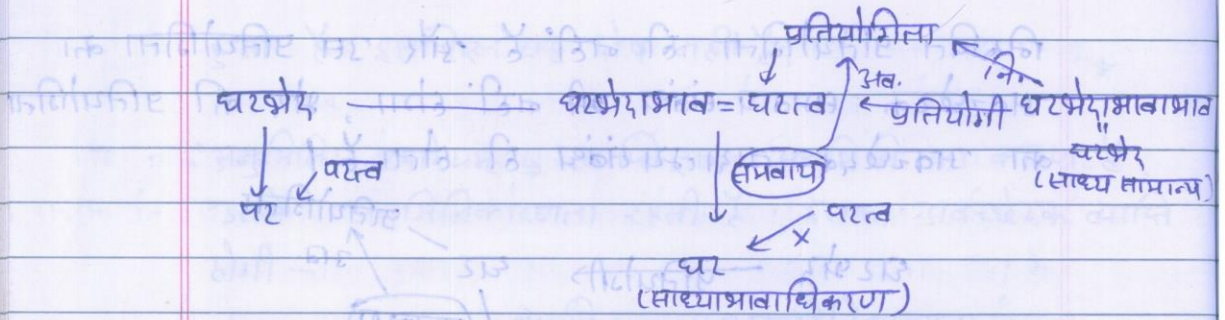 प्रतियोगिता
अव.
नि०
घटभेद
घटभेदाभाव = घटत्व
प्रतियोगी
घटभेदाभावाभाव
॥
घटभेद
(साध्य सामान्य)
पटत्व
समवाय
पटत्व
×
घट
(साध्याभावाधिकरण)